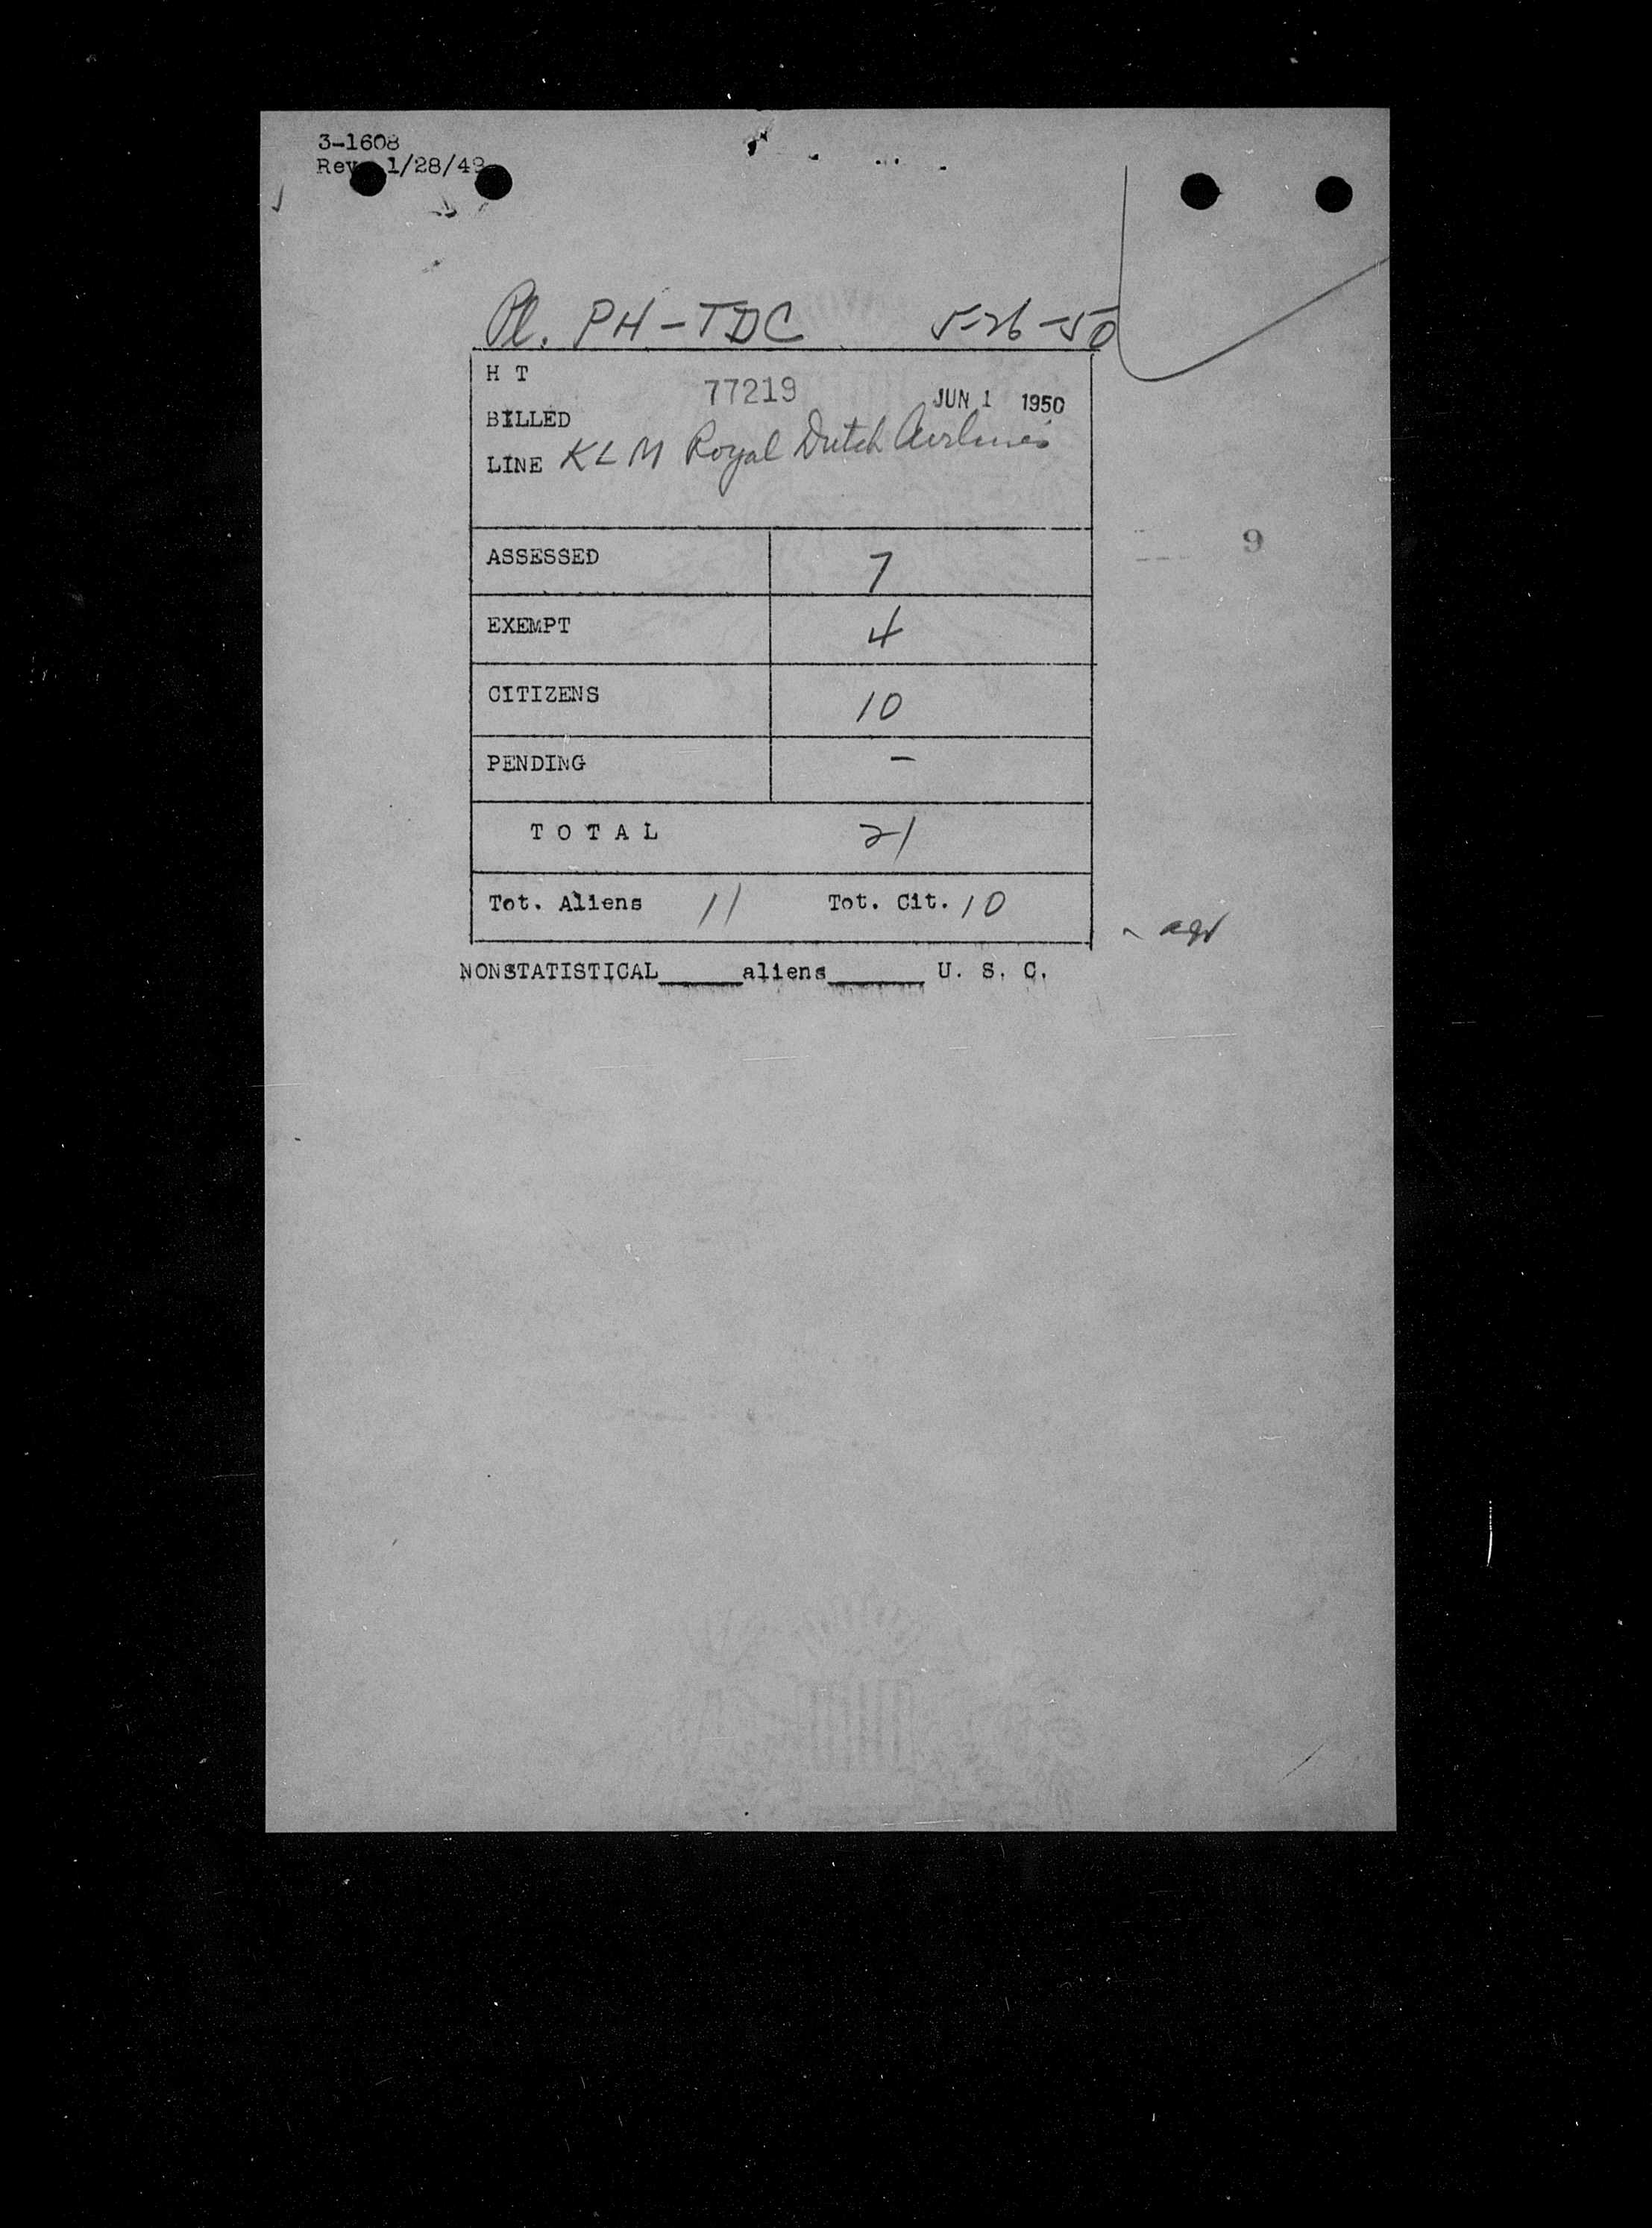 3-1608
Rev. 1/28/49
Pl. PH-TDC 5-26-50
H T
77219 JUN 1 1950
BILLED
LINE KLM Royal Dutch Airlines
9
ASSESSED 7
EXEMPT 4
CITIZENS 10
PENDING -
TOTAL 21
Tot. Aliens 11 Tot. Cit. 10
NONSTATISTICAL_____aliens_____ U. S. C.